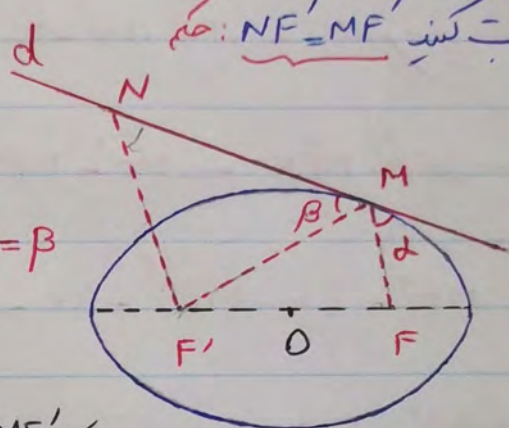 ت کنید NF′=MF′ : حکم
d
N
M
β
=β
α
F′ O F
MF′